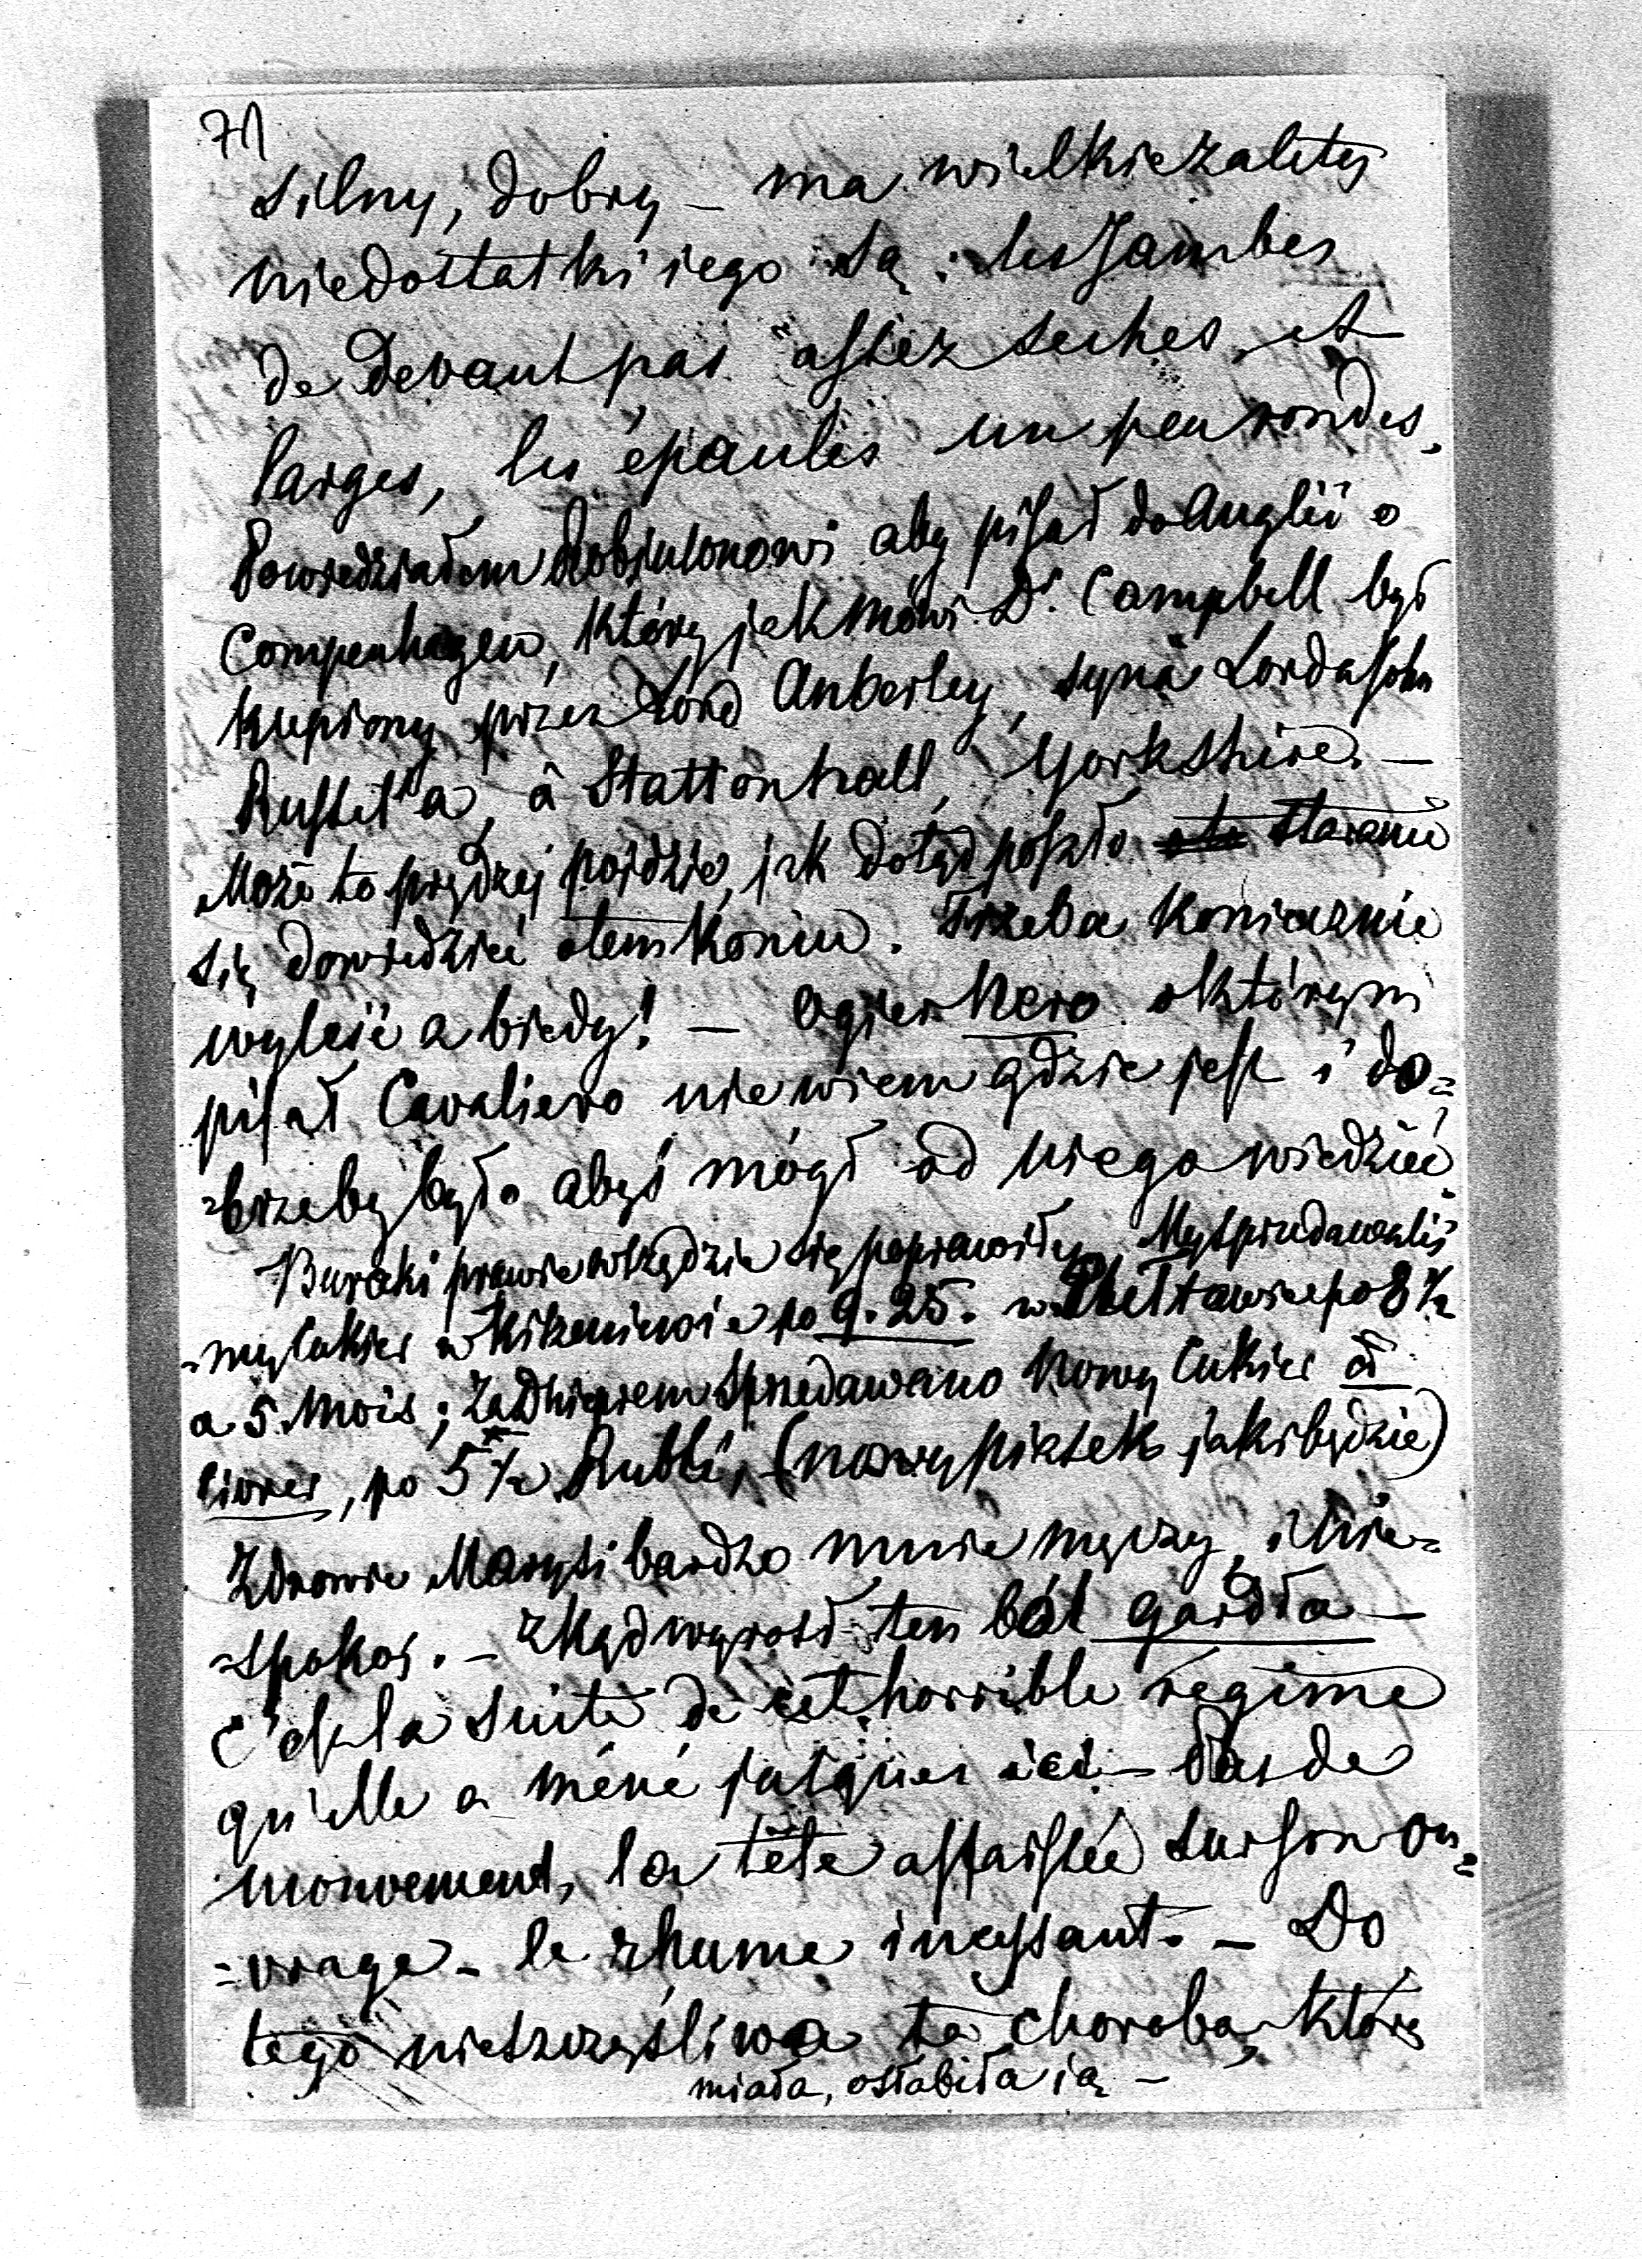 71
silny, dobry – ma wielkie zalety
niedostatki iego są: les Jambes
de Devant pas assez seches, et
larges, les épaules un peu rondes.
Powiedziałem Robinsonowi aby pisał do Anglii o
Compenhagen, który jak mówi Dr. Campbell był
kupiony przez Lord Anberley, syna Lorda John
Russel'a, à Stattonhall, Yorkshire. –
Może to prędzej pójdzie, jak dotąd poszło staranie
się dowiedzieć o tem koniu. Trzeba koniecznie
wyleść z biedy! – Ogier Nero o którym
pisał Cavaliero nie wiem gdzie jest i do=
=brzeby było abyś mógł od niego wiedzieć.
Buraki prawie wszędzie się poprawiły, Mysprzedawaliś
=my Cukier w Kiszeniewie po 9.25. w Połtawie po 8 1/2
a 5 Mois; Za Dnieprem sprzedawano Nowy Cukier à
livrer, po 5 1/2 Rubli, (nowy piasek jaki będzie)
Zdrowie Marysi bardzo mnie męczy, i nie=
=spokoi. – Zkąd wyrosł ten ból gardła –
C'est la suite de cet horrible régime
qu'elle a méné jusques ici – Pas de
mouvement, la tête affaissée sur son ou=
=vrage – le rhume incessant. – Do
tego nieszczęśliwa ta choroba, którą
miała, osłabiła ią –